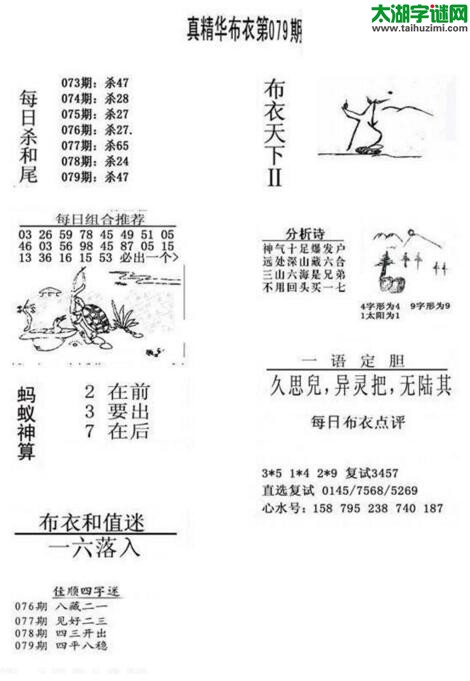 太湖字谜网
www.taihuzimi.com
真精华布衣第079期
每日杀和尾
073期：杀47
074期：杀28
075期：杀27
076期：杀27.
077期：杀65
078期：杀24
079期：杀47
布衣天下II
每日组合推荐
03 26 59 78 45 49 51 05
46 03 56 98 45 87 05 15
13 36 16 15 53 必出一个>
分析诗
神气十足爆发户
远处深山藏六合
三山六海是兄弟
不用回头买一七
4字形为4 9字形为9
1太阳为1
蚂蚁神算
2 在前
3 要出
7 在后
一语定胆
久思兒，异灵把，无陆其
每日布衣点评
3*5 1*4 2*9 复试3457
直选复试 0145/7568/5269
心水号：158 795 238 740 187
布衣和值迷
一六落入
佳顺四字迷
076期 八藏二一
077期 见好二三
078期 四三开出
079期 四平八稳